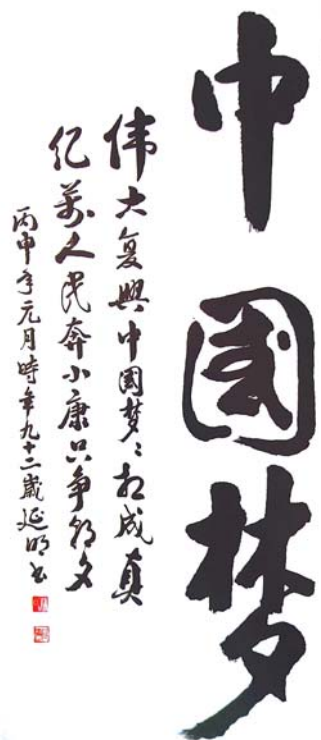 中國梦
伟大复興中国梦〻成真
亿萬人民奔小康只争朝夕
丙申年元月時年九十二歲延明书